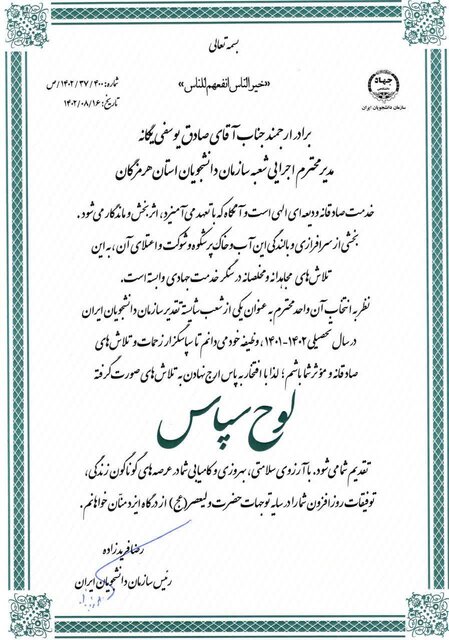 بسمه تعالی
«خیر الناس انفعهم للناس»
شماره: ۱۴۰۲/۳۷/۴۰۰/ص
تاریخ: ۱۴۰۲/۰۸/۱۶
جهاد
دانشگاهی
سازمان دانشجویان ایران
برادر ارجمند جناب آقای صادق یوسفی یگانه
مدیر محترم اجرایی شعبه سازمان دانشجویان استان هرمزگان
خدمت صادقانه ودیعه ای الهی است و آنگاه که با تعهد می آمیزد، اثر بخش و ماندگار می شود.
بخشی از سرافرازی و بالندگی این آب و خاک پر شکوه و شوکت و اعتلای آن، به این
تلاش های مجاهدانه و مخلصانه در سنگر خدمت جهادی وابسته است.
نظر به انتخاب آن واحد محترم به عنوان یکی از شعب شایسته تقدیر سازمان دانشجویان ایران
در سال تحصیلی ۱۴۰۲-۱۴۰۱، وظیفه خود می دانم تا سپاسگزار زحمات و تلاش های
صادقانه و مؤثر شما باشم؛ لذا با افتخار به پاس ارج نهادن به تلاش های صورت گرفته
لوح سپاس
تقدیم شما می شود. با آرزوی سلامتی، بهروزی و کامیابی شما در عرصه های گوناگون زندگی،
توفیقات روز افزون شما را در سایه توجهات حضرت ولیعصر (عج) از درگاه ایزد منّان خواهانم.
رضا فریدزاده
رئیس سازمان دانشجویان ایران